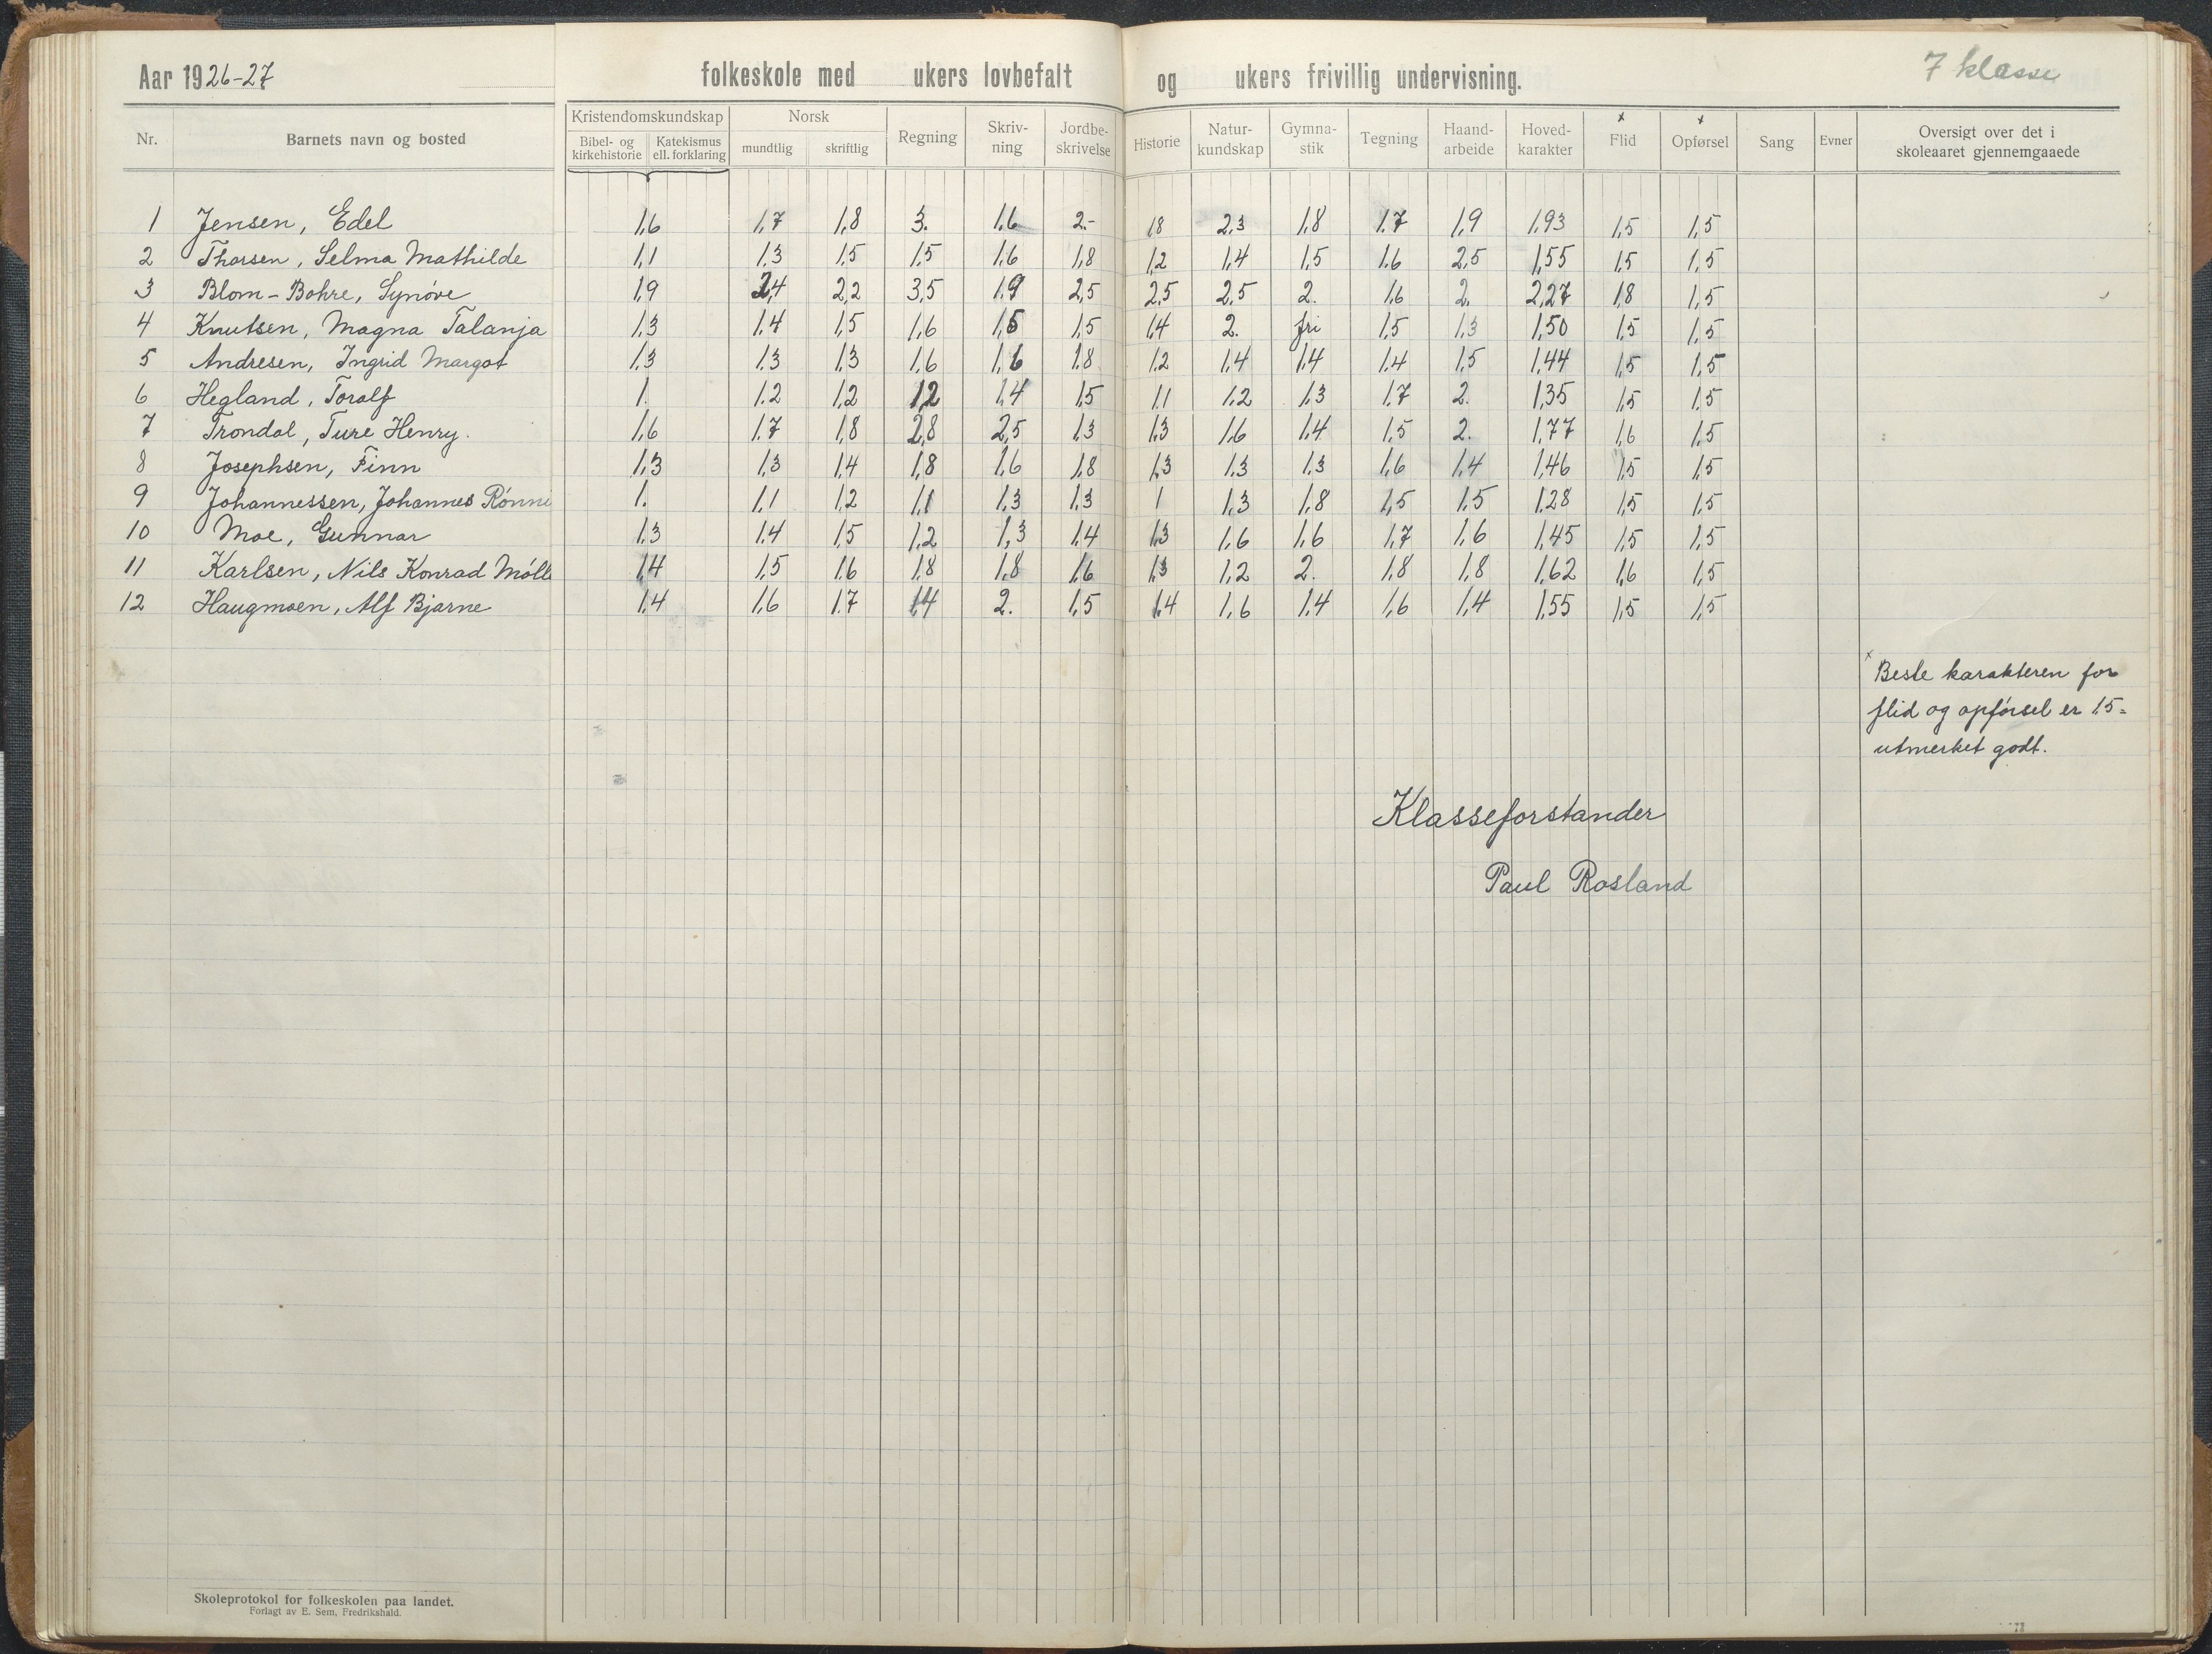 Aar 1926-27 folkeskole med ukers lovbefalt og ukers frivillig undervisning. 7 klasse
Nr. Barnets navn og bosted Kristendomskundskap Bibel- og kirkehistorie Katekismus ell. forklaring Norsk mundtlig skriftlig Regning Skriv-ning Jordbe-skrivelse Historie Natur-kundskap Gymna-stik Tegning Haand-arbeide Hoved-karakter x Flid x Opførsel Sang Evner Oversigt over det i skoleaaret gjennemgaaede
1 Jensen, Edel 1,6 1,7 1,8 3. 1,6 2.- 1,8 2,3 1,8 1,7 1,9 1,93 1,5 1,5
2 Thorsen, Selma Mathilde 1,1 1,3 1,5 1,5 1,6 1,8 1,2 1,4 1,5 1,6 2,5 1,55 1,5 1,5
3 Blom-Bohre, Synøve 1,9 2,4 2,2 3,5 1,9 2,5 2,5 2,5 2. 1,6 2. 2,27 1,8 1,5
4 Knutsen, Magna Talanja 1,3 1,4 1,5 1,6 1,5 1,5 1,4 2. fri 1,5 1,3 1,50 1,5 1,5
5 Andresen, Ingrid Margot 1,3 1,3 1,3 1,6 1,6 1,8 1,2 1,4 1,4 1,4 1,5 1,44 1,5 1,5
6 Hegland, Toralf 1. 1,2 1,2 1,2 1,4 1,5 1,1 1,2 1,3 1,7 2. 1,35 1,5 1,5
7 Trondal, Ture Henry. 1,6 1,7 1,8 2,8 2,5 1,3 1,3 1,6 1,4 1,5 2. 1,77 1,6 1,5
8 Josephsen, Finn 1,3 1,3 1,4 1,8 1,6 1,8 1,3 1,3 1,3 1,6 1,4 1,46 1,5 1,5
9 Johannessen, Johannes Rønni 1. 1,1 1,2 1,1 1,3 1,3 1 1,3 1,8 1,5 1,5 1,28 1,5 1,5
10 Moe, Gunnar 1,3 1,4 1,5 1,2 1,3 1,4 1,3 1,6 1,6 1,7 1,6 1,45 1,5 1,5
11 Karlsen, Nils Konrad Mölle 1,4 1,5 1,6 1,8 1,8 1,6 1,3 1,2 2. 1,8 1,8 1,62 1,6 1,5
12 Haugmoen, Alf Bjarne 1,4 1,6 1,7 1,4 2. 1,5 1,4 1,6 1,4 1,6 1,4 1,55 1,5 1,5
x Beste karakteren for
flid og opførsel er 1,5 =
utmerket godt.
Klasseforstander
Paul Rosland
Skoleprotokol for folkeskolen paa landet.
Forlagt av E. Sem, Fredrikshald.